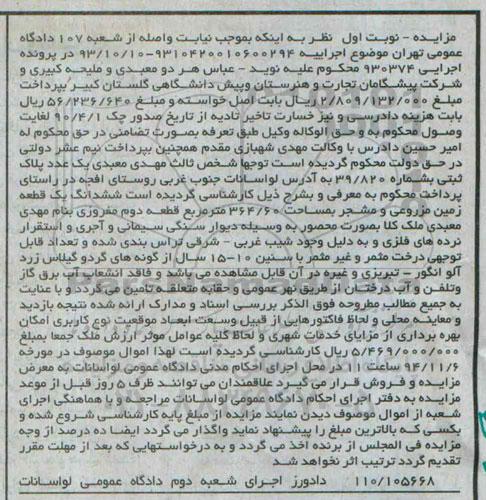 مزایده - نوبت اول نظر به اینکه بموجب نیابت واصله از شعبه ۱۰۷ دادگاه
عمومی تهران موضوع اجراییه ۹۳۱۰۴۲۰۰۱۰۶۰۰۲۹۴-۹۳/۱۰/۱۰ در پرونده
اجرایی ۹۳۰۳۷۴ محکوم علیه نوید - عباس هر دو معبدی و ملیحه کبیری و
شرکت پیشگامان تجارت و هنرستان وپیش دانشگاهی گلستان کبیر بپرداخت
مبلغ ۲/۸۰۹/۱۳۲/۰۰۰ ریال بابت اصل خواسته و مبلغ ۵۶/۲۳۶/۶۴۰ ریال
بابت هزینه دادرسی و نیز خسارت تاخیر تادیه از تاریخ صدور چک ۹۰/۴/۱ لغایت
وصول محکوم به و حق الوکاله وکیل طبق تعرفه بصورت تضامنی در حق محکوم له
امیر حسین دادرس با وکالت مهدی شهبازی مقدم همچنین بپرداخت نیم عشر دولتی
در حق دولت محکوم گردیده است توجها شخص ثالث مهدی معبدی یک عدد پلاک
ثبتی بشماره ۳۹/۸۲۰ به آدرس لواسانات جنوب غربی روستای افجه در راستای
پرداخت محکوم به معرفی و بشرح ذیل کارشناسی گردیده است ششدانگ یک قطعه
زمین مزروعی و مشجر بمساحت ۳۶۴/۶۰ مترمربع قطعه دوم مفروزی بنام مهدی
معبدی ملک کلا بصورت محصور به وسیله دیوار سنگی سیمانی و آجری و استقرار
نرده های فلزی و به دلیل وجود شیب غربی - شرقی تراس بندی شده و تعداد قابل
توجهی درخت مثمر و غیر مثمر با سنین ۱۰-۱۵ سال از گونه های گردو گیلاس زرد
آلو انگور - تبریزی و غیره در آن قابل مشاهده می باشد و فاقد انشعاب آب برق گاز
وتلفن و آب درختان از طریق نهر عمومی و حقابه متعلقه تامین می گردد و با عنایت
به جمیع مطالب مطروحه فوق الذکر بررسی اسناد و مدارک ارائه شده نتیجه بازدید
و معاینه محلی و لحاظ فاکتورهایی از قبیل وسعت ابعاد موقعیت نوع کاربری امکان
بهره برداری از مزایای خدمات شهری و لحاظ کلیه عوامل موثر ارزش ملک جمعا بمبلغ
۵/۴۶۹/۰۰۰/۰۰۰ ریال کارشناسی گردیده است لهذا اموال موصوف در مورخه
۹۴/۱۱/۶ ساعت ۱۱ در محل اجرای احکام مدنی دادگاه عمومی لواسانات به معرض
مزایده و فروش قرار می گیرد علاقمندان می توانند ظرف ۵ روز قبل از موعد
مزایده به دفتر اجرای احکام دادگاه عمومی لواسانات مراجعه و با هماهنگی اجرای
شعبه از اموال موصوف دیدن نمایند مزایده از مبلغ پایه کارشناسی شروع شده و
بکسی که بالاترین مبلغ را پیشنهاد نماید واگذار می گردد ایضا ده درصد از وجه
مزایده فی المجلس از برنده اخذ می گردد و به درخواستهایی که بعد از مهلت مقرر
تقدیم گردد ترتیب اثر نخواهد شد
۱۱۰/۱۰۵۶۶۸ دادورز اجرای شعبه دوم دادگاه عمومی لواسانات